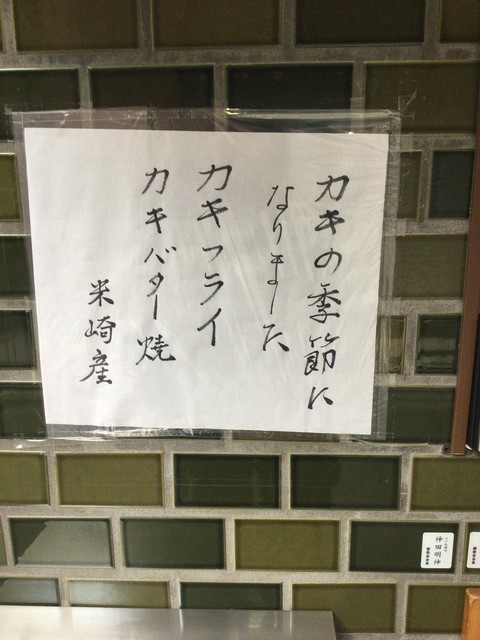 カキの季節に
なりました
カキフライ
カキバター焼
米崎産
神田明神